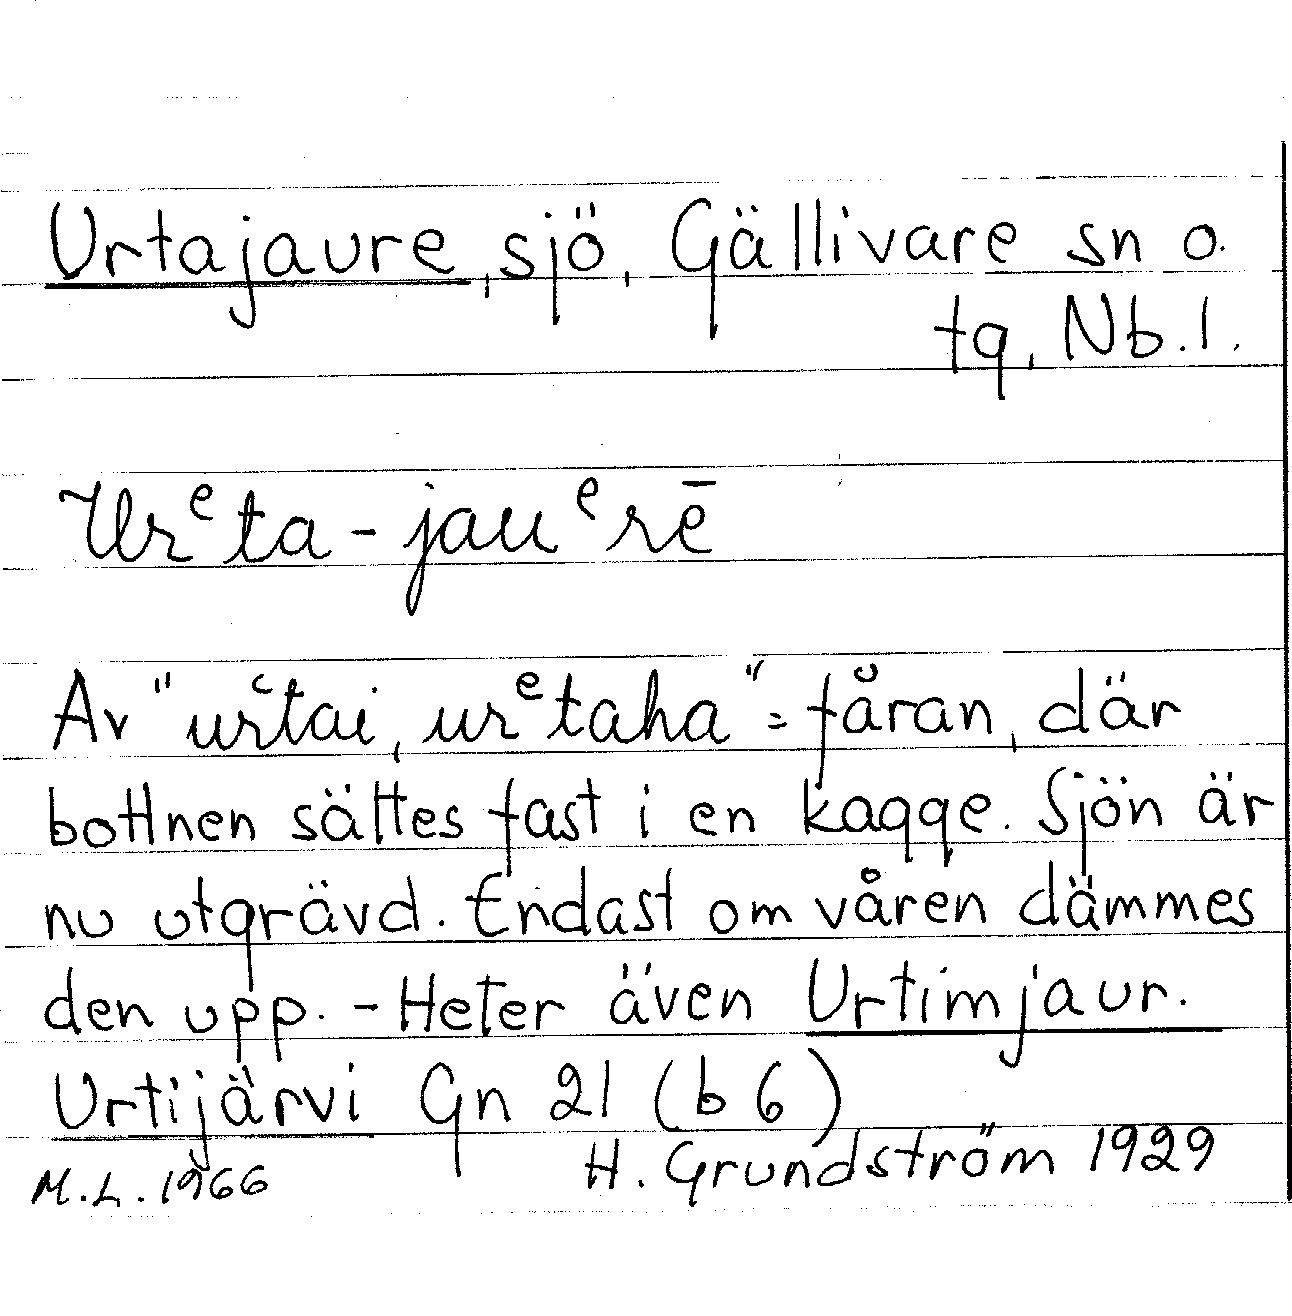 Urtajaure, sjö, Gällivare sn o.
tg, Nb. l.
Urᵉta-jauᵉrē
Av "urštai, urᵉtaha" = fåran, där
bottnen sättes fast i en kagge. Sjön är
nu utgrävd. Endast om våren dämmes
den upp. - Heter även Urtimjaur.
Urtijärvi Gn 21 (b 6)
H. Grundström 1929
M.L. 1966